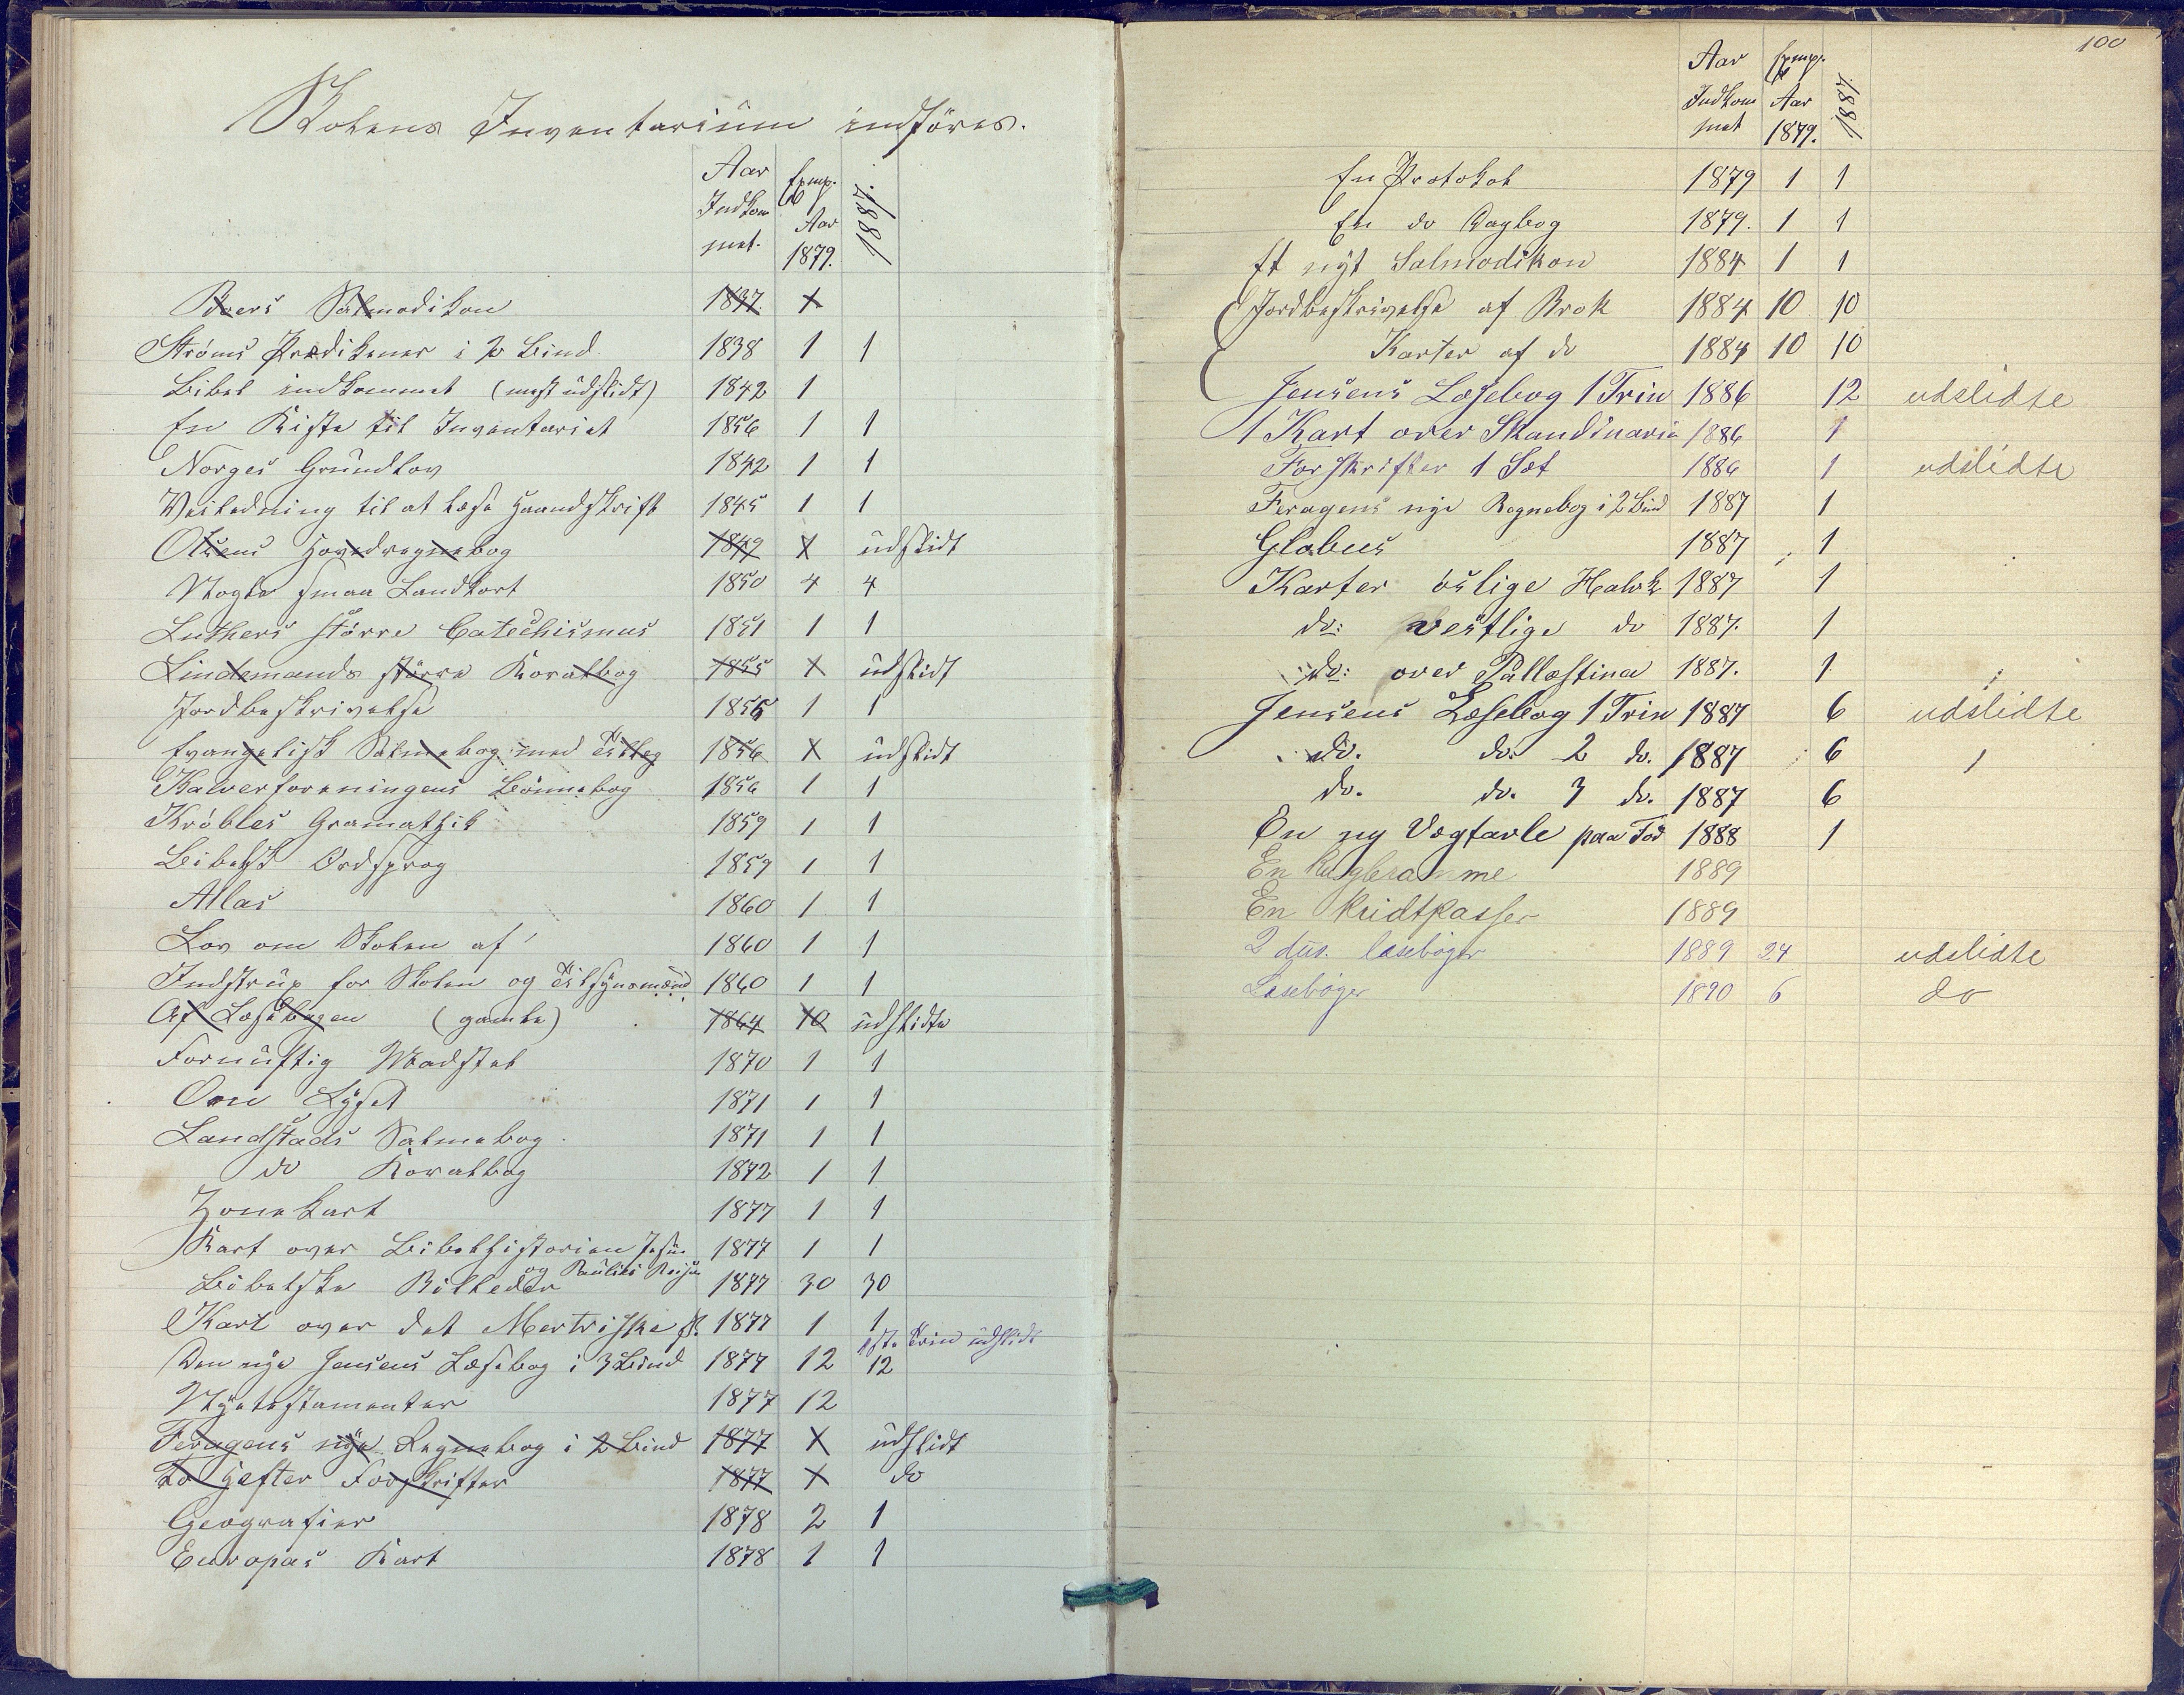 Skolens Inventarium indføres.
Aar Indkommet. Expl. Aar 1879. 1881.
Roers Salmodikon 1837. 1
Strøms Prædikener i 2 Bind 1838 1 1
Bibel indkommet (mest udslidt) 1842 1
En Kiste til Inventariet 1856 1 1
Norges Grundlov 1842 1 1
Veiledning til at læse Haandskrift 1845 1 1
Olsens Hovedregnebog 1849 1 udslidt
Nogle smaa Landkort 1850 4 4
Luthers større Catechismus 1851 1 1
Lindemands større Koralbog 1855 1 udslidt
Jordbeskrivelse 1856 1 1
Evangelisk Salmebog med Tillæg 1856 1 udslidt
Kalverforeningens Bønnebog 1856 1 1
Krøbles Gramathik 1859 1 1
Bibelsk Ordsprog 1859 1 1
Atlas 1860 1 1
Lov om Skolen af 1860 1 1
Indstrup for Skolen og Tilsynsmænd 1860 1 1
Af Læsebogen (gamle) 1864 10 udslidte
Fornuftig Madstel 1870 1 1
Om Lyset 1871 1 1
Landstads Salmebog 1871 1 1
do Koralbog 1872 1 1
Zonekart 1877 1 1
Kart over Bibelhistorien Jesu 1877 1 1
og Paulus Reiser
Bibelske Billeder 1877 30 30
Kart over det Mertriske 1877 1 1
1ste Trin udslidt
Den nye Jensens Læsebog i 3 Bind 1877 12 12
Nyetestamenter 1877 12
Feragens nye Regnebog i 2 Bind 1877 1 udslidt
To Hefter Forskrifter 1877 1 do
Geografier 1878 2 1
Europas Kart 1878 1 1
100
Aar Indkommet Expl. Aar 1879. 1881.
En Protokol 1879 1 1
En do Dagbog 1879. 1 1
Et nyt Salmodikon 1884 1 1
Jordbeskrivelse af Brok 1884 10 10
Karter af do 1884 10 10
Jensens Læsebog 1 Trin 1886 12 udslidte
1 Kart over Skandinavia 1886 1
Forskrifter 1 Sæt 1886 1 udslidte
Feragens nye Regnebog i 2 Bind 1887 1
Globus 1887 1
Karter øslige Halvk 1887 1
do: vestlige do 1887. 1
do: over Pallæstina 1887. 1
Jensens Læsebog 1 Trin 1887 6 udslidte
do. do. 2 do. 1887 6
do. do. 3 do. 1887 6
En ny Vægtavle paa Fod 1888 1
En Kugleramme 1889
En Kridtkasser 1889
2 dus. læsebøger 1889 24 udslidte
Læsebøger 1890 6 do